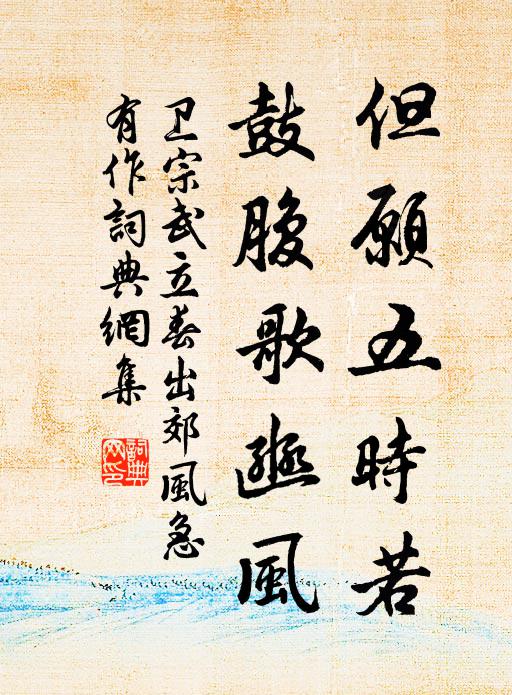 但願五時若
鼓腹歌豳風
卫宗武立春出郊風急
有作詞典網集
詞典
网印